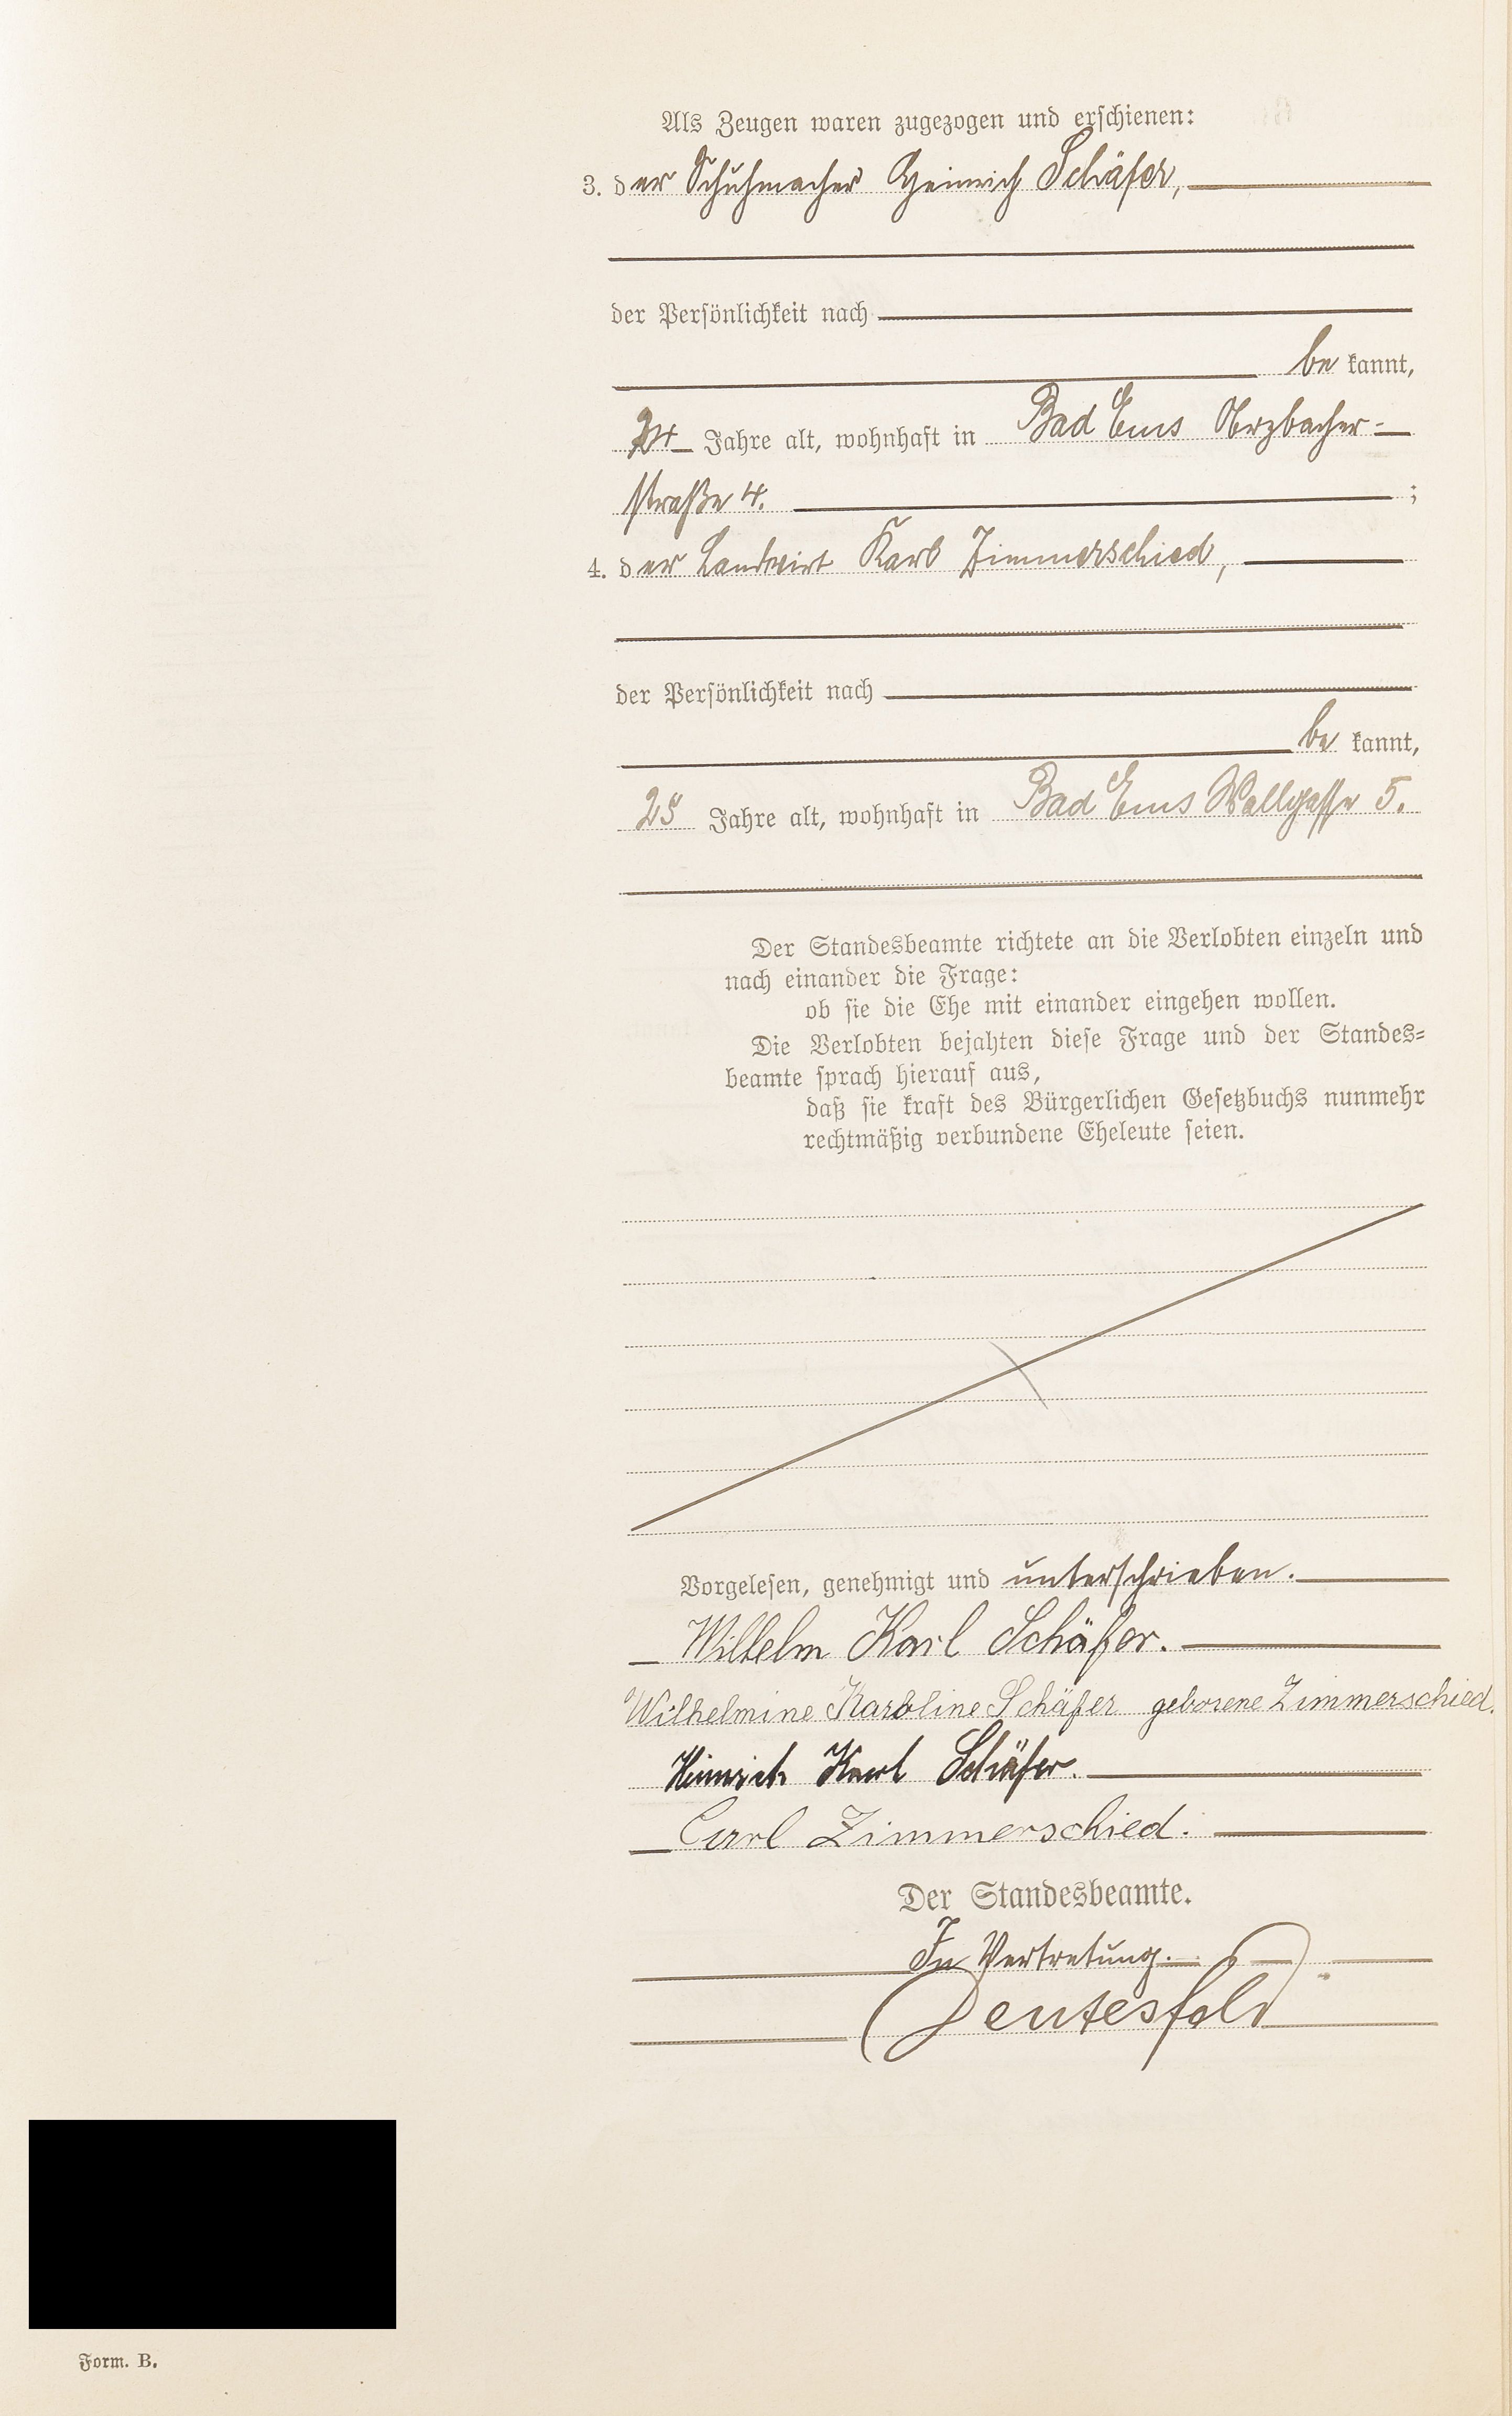 Als Zeugen waren zugezogen und erschienen:
3. der Schuhmacher Heinrich Schäfer,
der Persönlichkeit nach
be kannt,
24 Jahre alt, wohnhaft in Bad Ems
straße 4. ;
4. der Landwirt Karl Zimmerschied,
der Persönlichkeit nach
be kannt,
25 Jahre alt, wohnhaft in Bad Ems Wallgasse 5.
Der Standesbeamte richtete an die Verlobten einzeln und
nach einander die Frage:
ob sie die Ehe mit einander eingehen wollen.
Die Verlobten bejahten diese Frage und der Standes=
beamte sprach hierauf aus,
daß sie kraft des Bürgerlichen Gesetzbuchs nunmehr
rechtmäßig verbundene Eheleute seien.
Vorgelesen, genehmigt und unterschrieben.
Wilhelm Karl Schäfer.
Wilhelmine Karoline Schäfer geborene Zimmerschied.
Heinrich Karl Schäfer.
Carl Zimmerschied.
Der Standesbeamte.
In Vertretung.
Deutesfeld
Form. B.